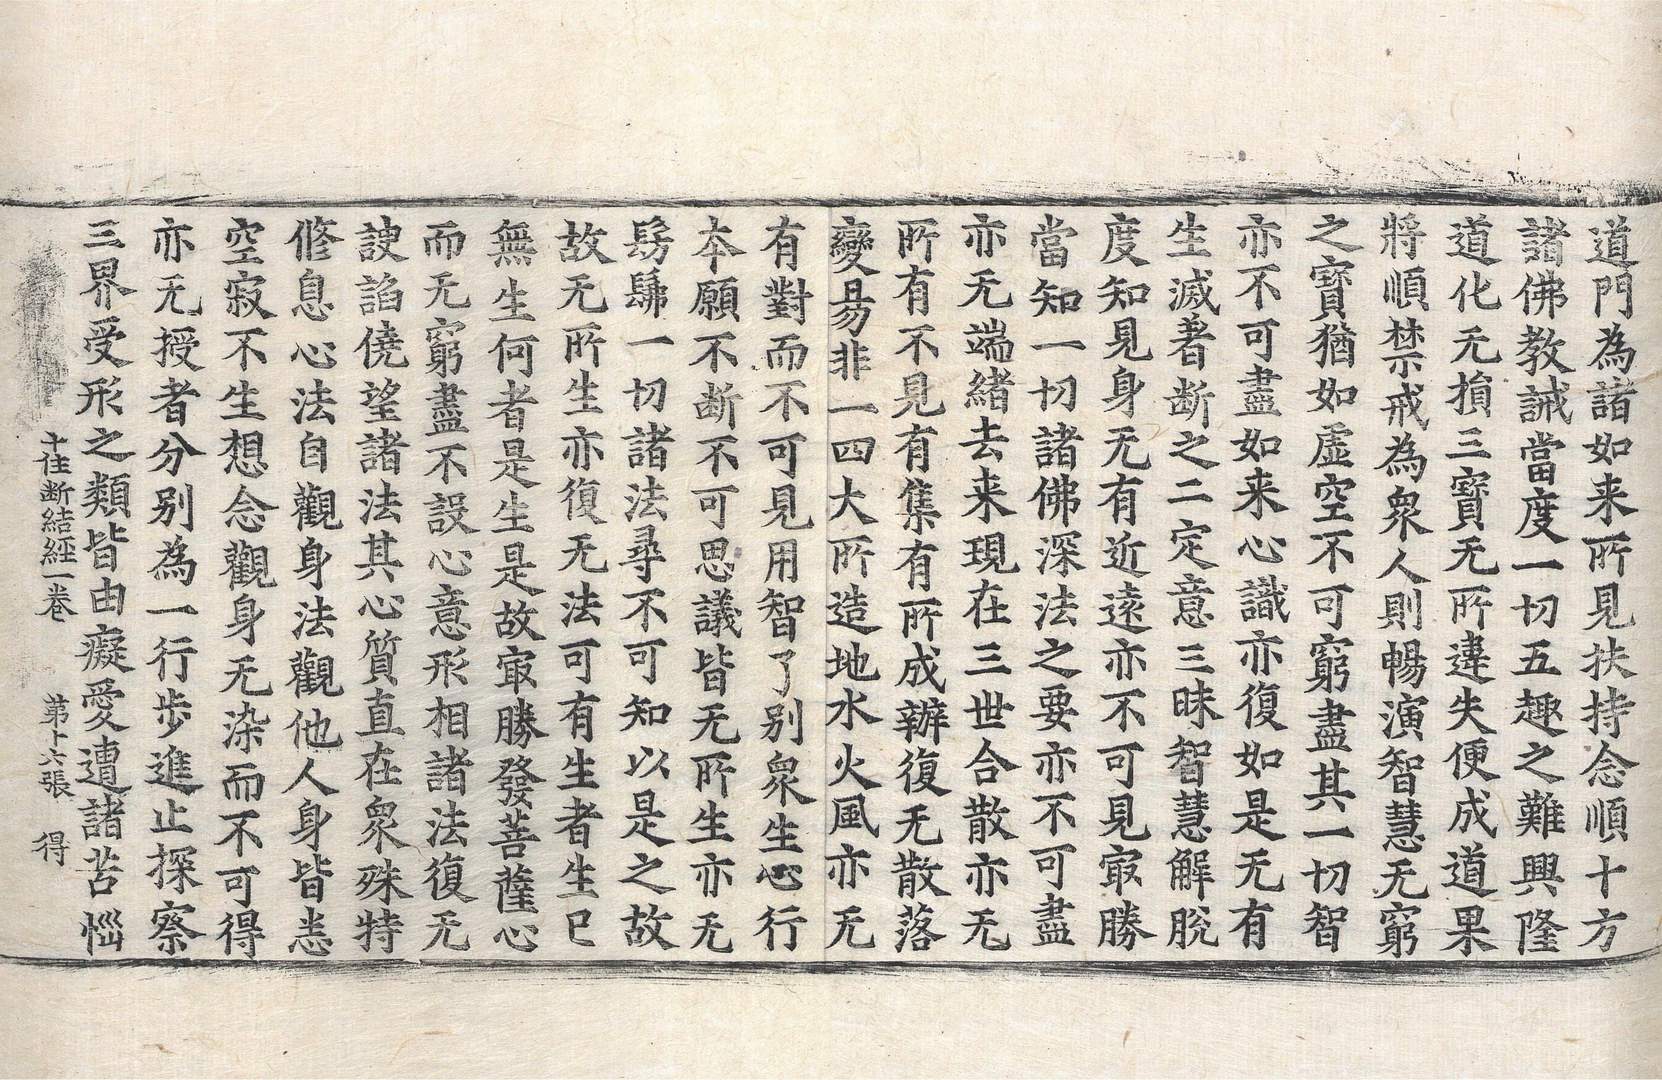 道門為諸如来所見扶持念順十方
諸佛教誡當度一切五趣之難興隆
道化无損三寶无所違失便成道果
將順禁戒為衆人則暢演智慧无窮
之寶猶如虛空不可窮盡其一切智
亦不可盡如来心識亦復如是无有
生滅著断之二定意三昧智慧解脫
度知見身无有近遠亦不可見㝡勝
當知一切諸佛深法之要亦不可盡
亦无端緒去来現在三世合散亦无
所有不見有集有所成辦復无散落
變易非一四大所造地水火風亦无
有對而不可見用智了別衆生心行
本願不断不可思議皆无所生亦无
髣髴一切諸法尋不可知以是之故
故无所生亦復无法可有生者生已
無生何者是生是故㝡勝發菩薩心
而无窮盡不設心意形相諸法復无
諛諂僥望諸法其心質直在衆殊特
修息心法自觀身法觀他人身皆悉
空寂不生想念觀身无染而不可得
亦无授者分別為一行步進止探察
三界受形之類皆由癡愛遭諸苦惱
十住断結經一卷 第十六張 得